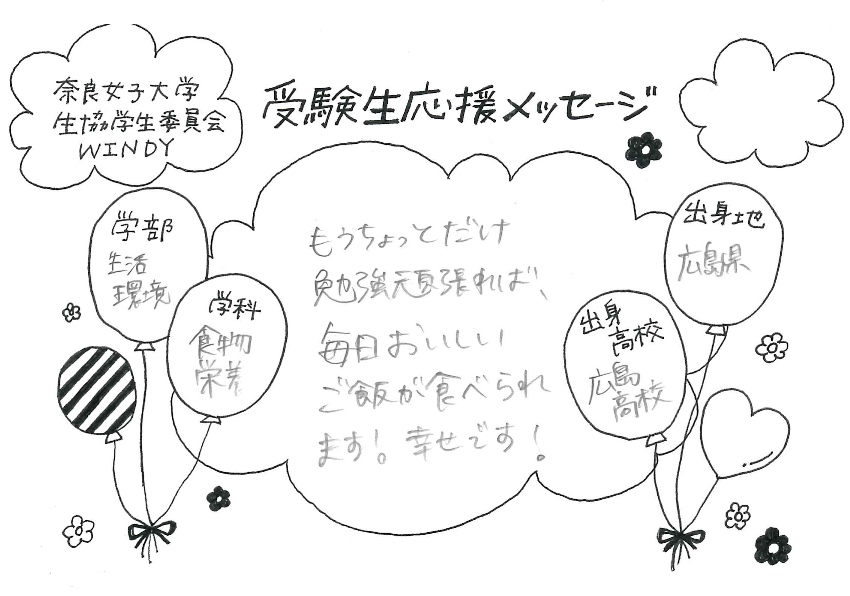 奈良女子大学
生協学生委員会
WINDY
受験生応援メッセージ
学部
生活
環境
学科
食物
栄養
もうちょっとだけ
勉強頑張れば、
毎日おいしい
ご飯が食べられ
ます!幸せです!
出身地
広島県
出身
高校
広島
高校